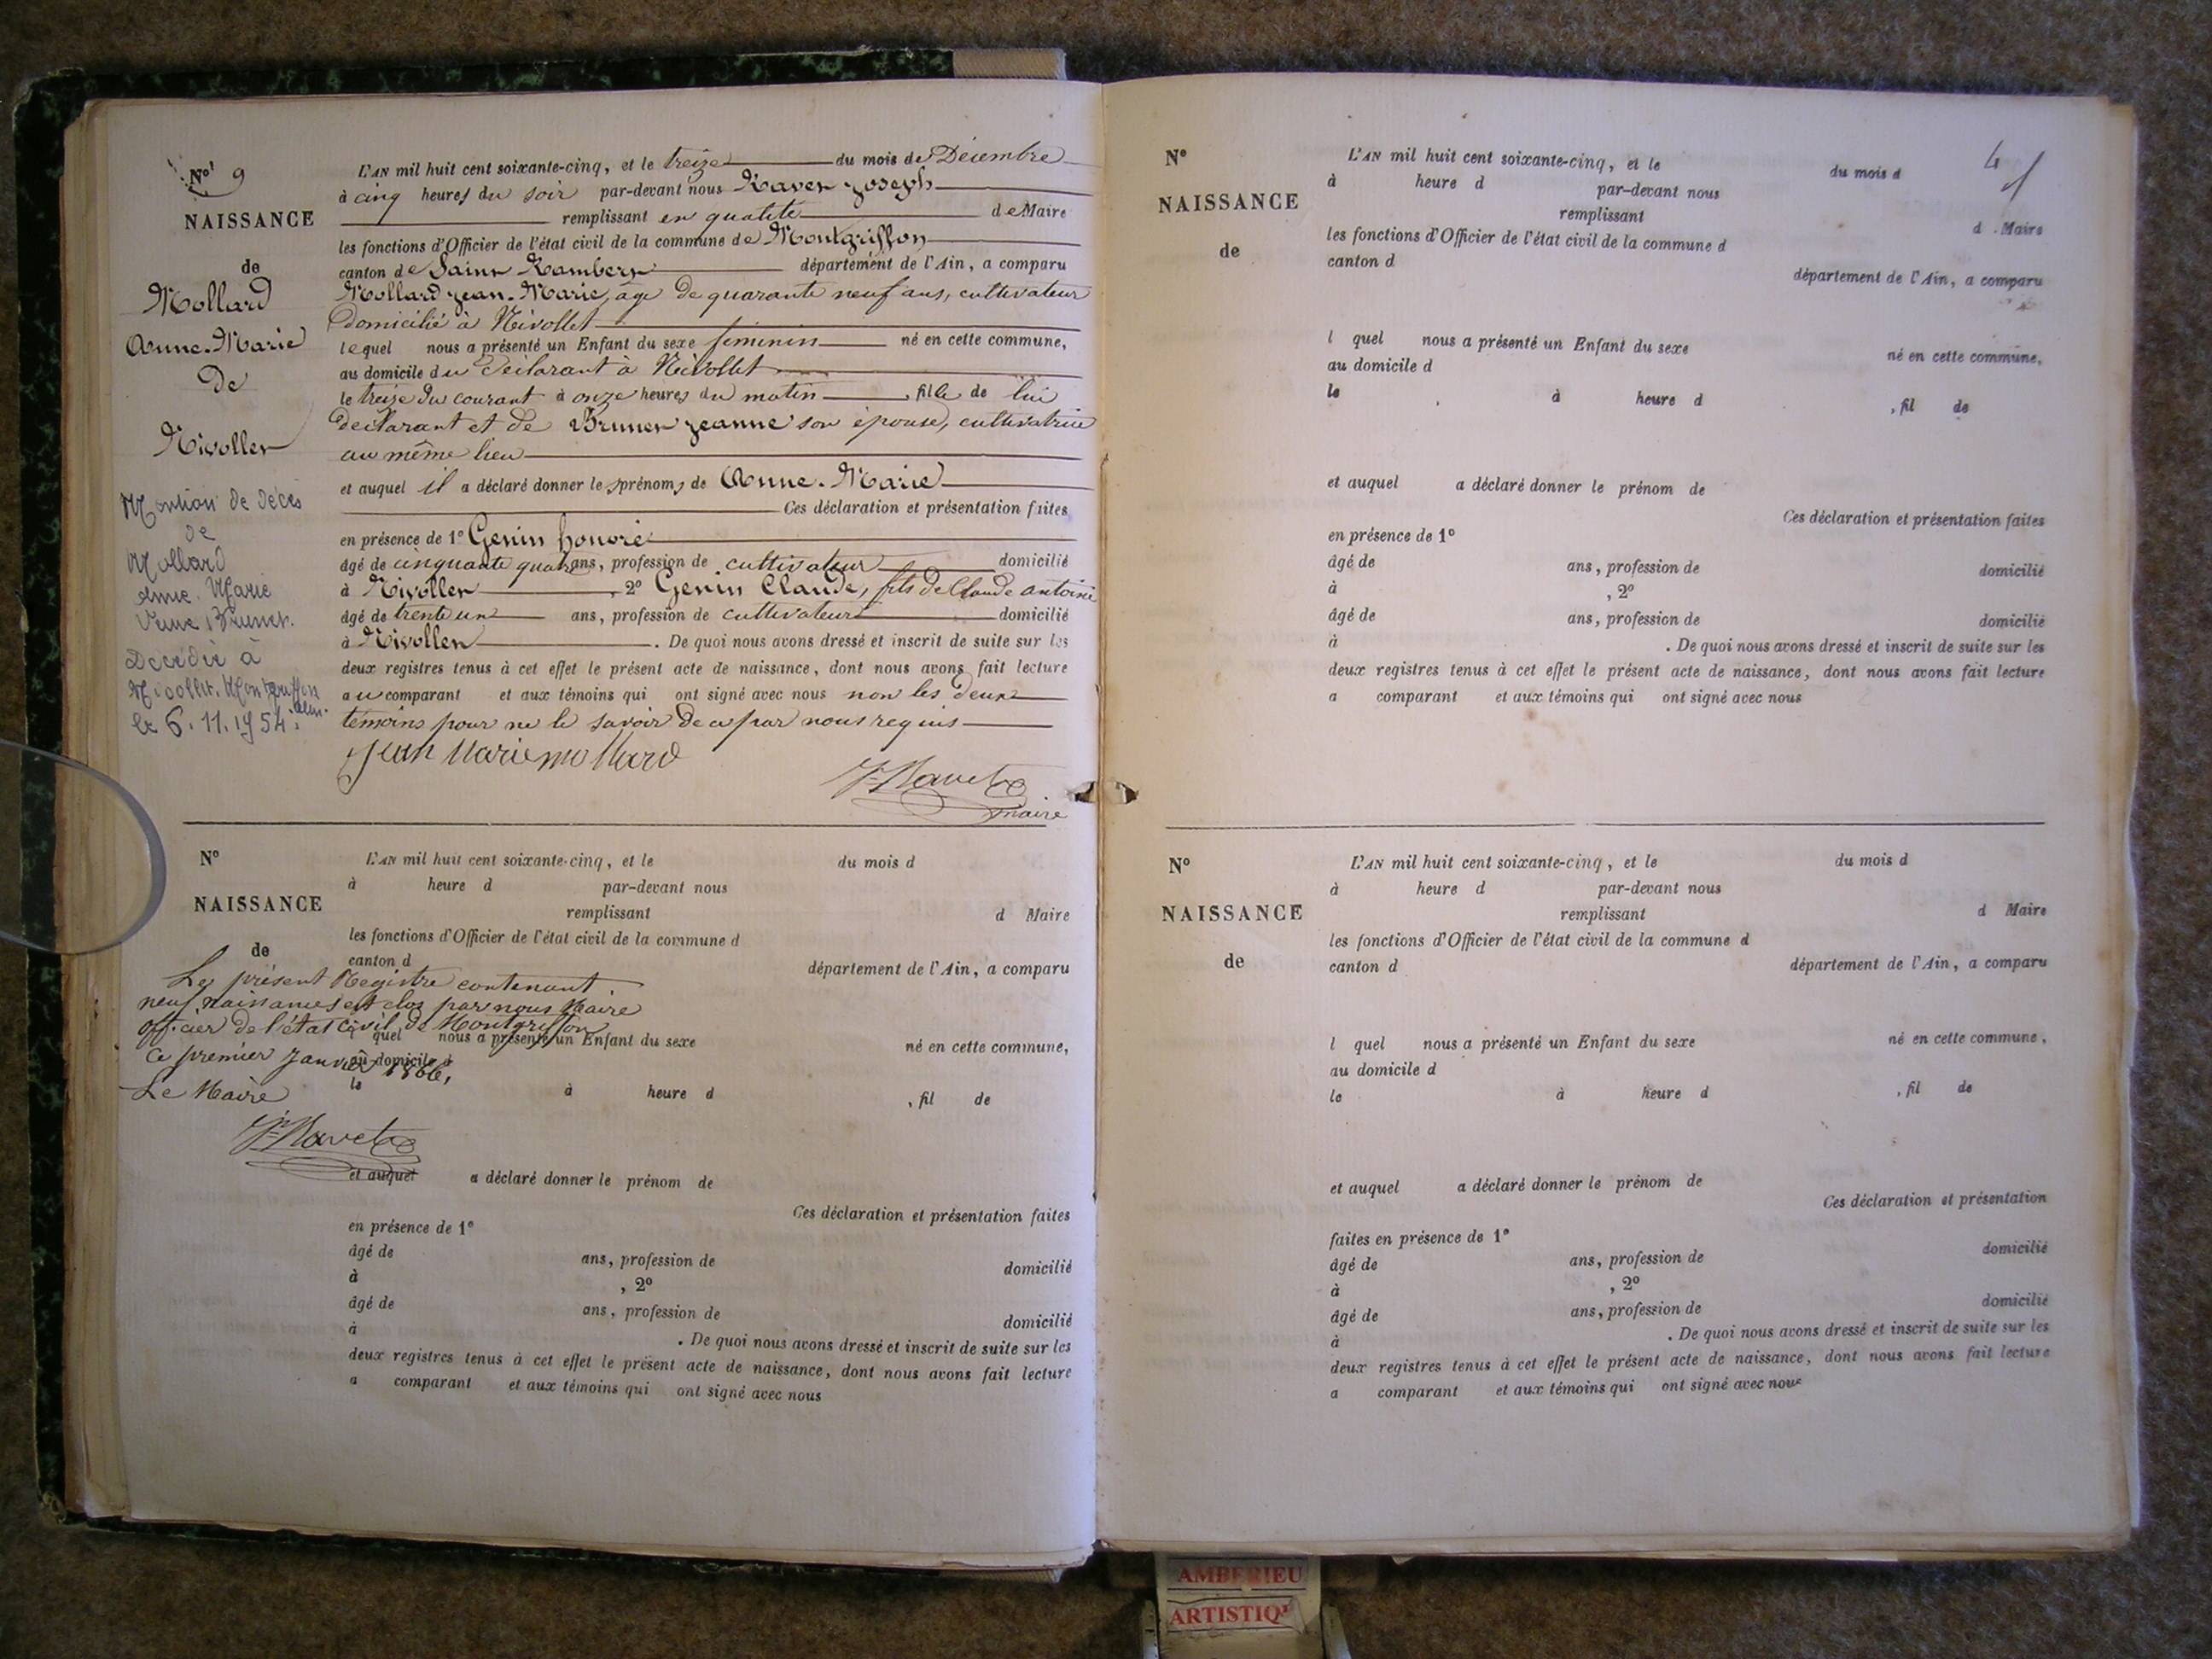 N° 9
NAISSANCE
de
Mollard
Anne-Marie
De
Nivollet
Mention de décès
de
Mollard
Anne-Marie
Veuve Brunet.
Décédée à
Nivollet-Montgriffon
le 6.11.1954.
L'AN mil huit cent soixante-cinq, et le treize du mois de Décembre
à cinq heures du soir par-devant nous Ravet Joseph
remplissant en qualité de Maire
les fonctions d'Officier de l'état civil de la commune de Montgriffon
canton de Saint Rambert département de l'Ain, a comparu
Mollard Jean-Marie, âgé de quarante neuf ans, cultivateur
Domicilié à Nivollet
lequel nous a présenté un Enfant du sexe féminin né en cette commune,
au domicile du Déclarant à Nivollet
le treize du courant à onze heures du matin, fille de lui
déclarant et de Brunet Jeanne son épouse, cultivatrice
au même lieu
et auquel il a déclaré donner les prénoms de Anne-Marie
Ces déclaration et présentation faites
en présence de 1° Genin honoré
âgé de cinquante quatre ans, profession de cultivateur domicilié
à Nivollet, 2° Genin Claude, fils de Claude antoine
âgé de trente un ans, profession de cultivateur domicilié
à Nivollet. De quoi nous avons dressé et inscrit de suite sur les
deux registres tenus à cet effet le présent acte de naissance, dont nous avons fait lecture
au comparant et aux témoins qui ont signé avec nous non les deux
témoins pour ne le savoir de ce par nous requis
Jean Marie mollard
J. Ravet
maire
N°
NAISSANCE
de
L'AN mil huit cent soixante-cinq, et le du mois d
à heure d par-devant nous
remplissant d Maire
les fonctions d'Officier de l'état civil de la commune d
canton d département de l'Ain, a comparu
Le présent Registre contenant
neuf naissances est clos par nous Maire
officier de l'état civil de Montgriffon
ce premier Janvier 1866,
Le Maire
J. Ravet
l quel nous a présenté un Enfant du sexe né en cette commune,
au domicile d
le à heure d , fil de
et auquel a déclaré donner le prénom de
Ces déclaration et présentation faites
en présence de 1°
âgé de ans, profession de domicilié
à , 2°
âgé de ans, profession de domicilié
à . De quoi nous avons dressé et inscrit de suite sur les
deux registres tenus à cet effet le présent acte de naissance, dont nous avons fait lecture
a comparant et aux témoins qui ont signé avec nous
4
N°
NAISSANCE
de
L'AN mil huit cent soixante-cinq, et le du mois d
à heure d par-devant nous
remplissant d Maire
les fonctions d'Officier de l'état civil de la commune d
canton d
département de l'Ain, a comparu
l quel nous a présenté un Enfant du sexe né en cette commune,
au domicile d
le à heure d , fil de
et auquel a déclaré donner le prénom de
Ces déclaration et présentation faites
en présence de 1°
âgé de ans, profession de domicilié
à , 2°
âgé de ans, profession de domicilié
à . De quoi nous avons dressé et inscrit de suite sur les
deux registres tenus à cet effet le présent acte de naissance, dont nous avons fait lecture
a comparant et aux témoins qui ont signé avec nous
N°
NAISSANCE
de
L'AN mil huit cent soixante-cinq, et le du mois d
à heure d par-devant nous
remplissant d Maire
les fonctions d'Officier de l'état civil de la commune d
canton d département de l'Ain, a comparu
l quel nous a présenté un Enfant du sexe né en cette commune,
au domicile d
le à heure d , fil de
et auquel a déclaré donner le prénom de
Ces déclaration et présentation
faites en présence de 1°
âgé de ans, profession de domicilié
à , 2°
âgé de ans, profession de domicilié
à . De quoi nous avons dressé et inscrit de suite sur les
deux registres tenus à cet effet le présent acte de naissance, dont nous avons fait lecture
a comparant et aux témoins qui ont signé avec nous
AMBERIEU
ARTISTIQ